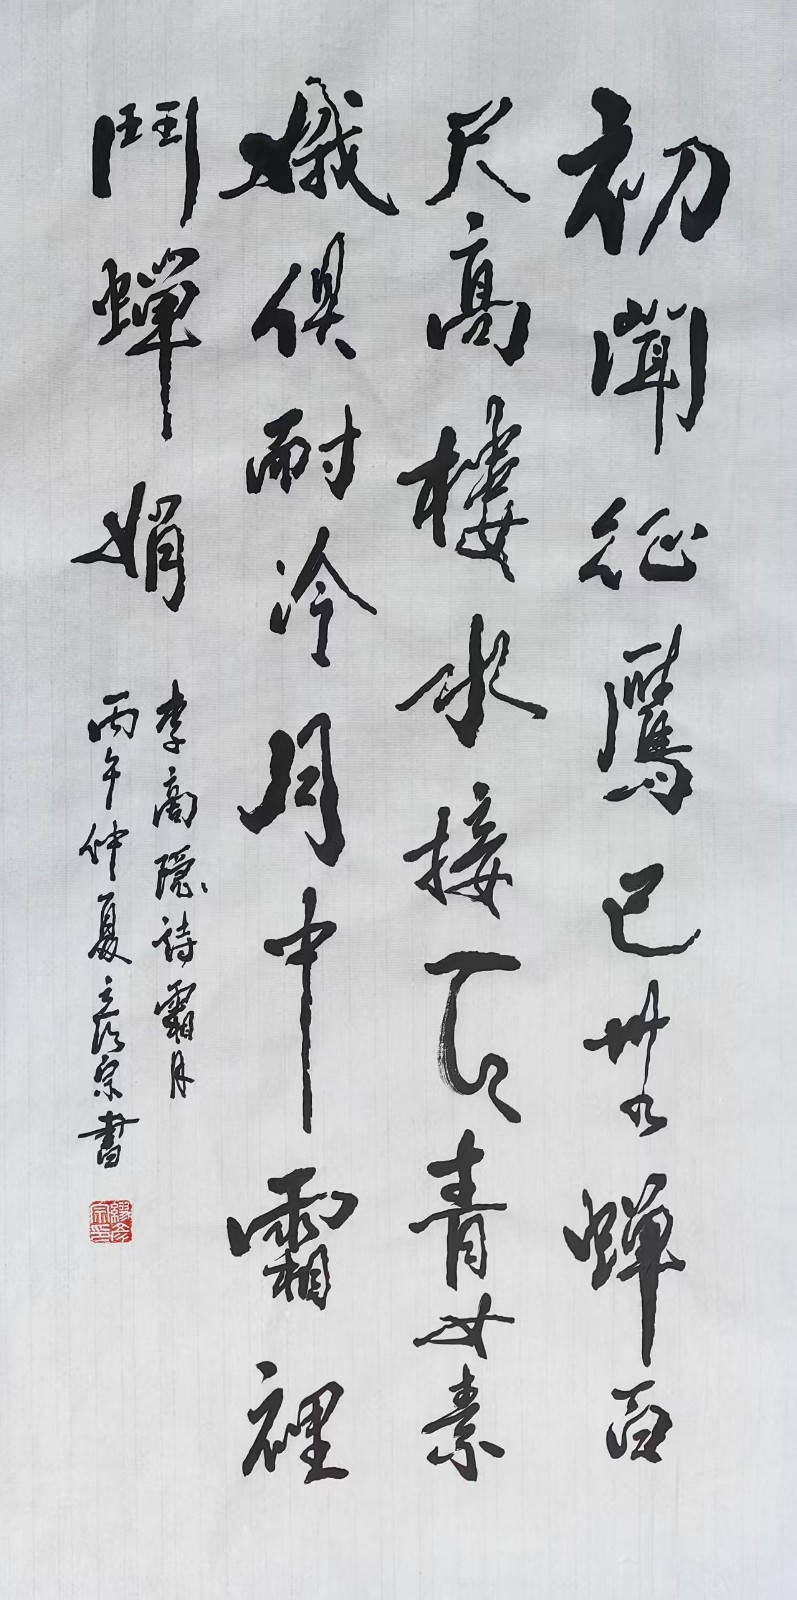 初聞征鷹已無蝉百
尺高樓水接天青女素
娥俱耐冷月中霜裡
鬥蝉娟
李商隐詩霜月
丙午仲夏彦宗書